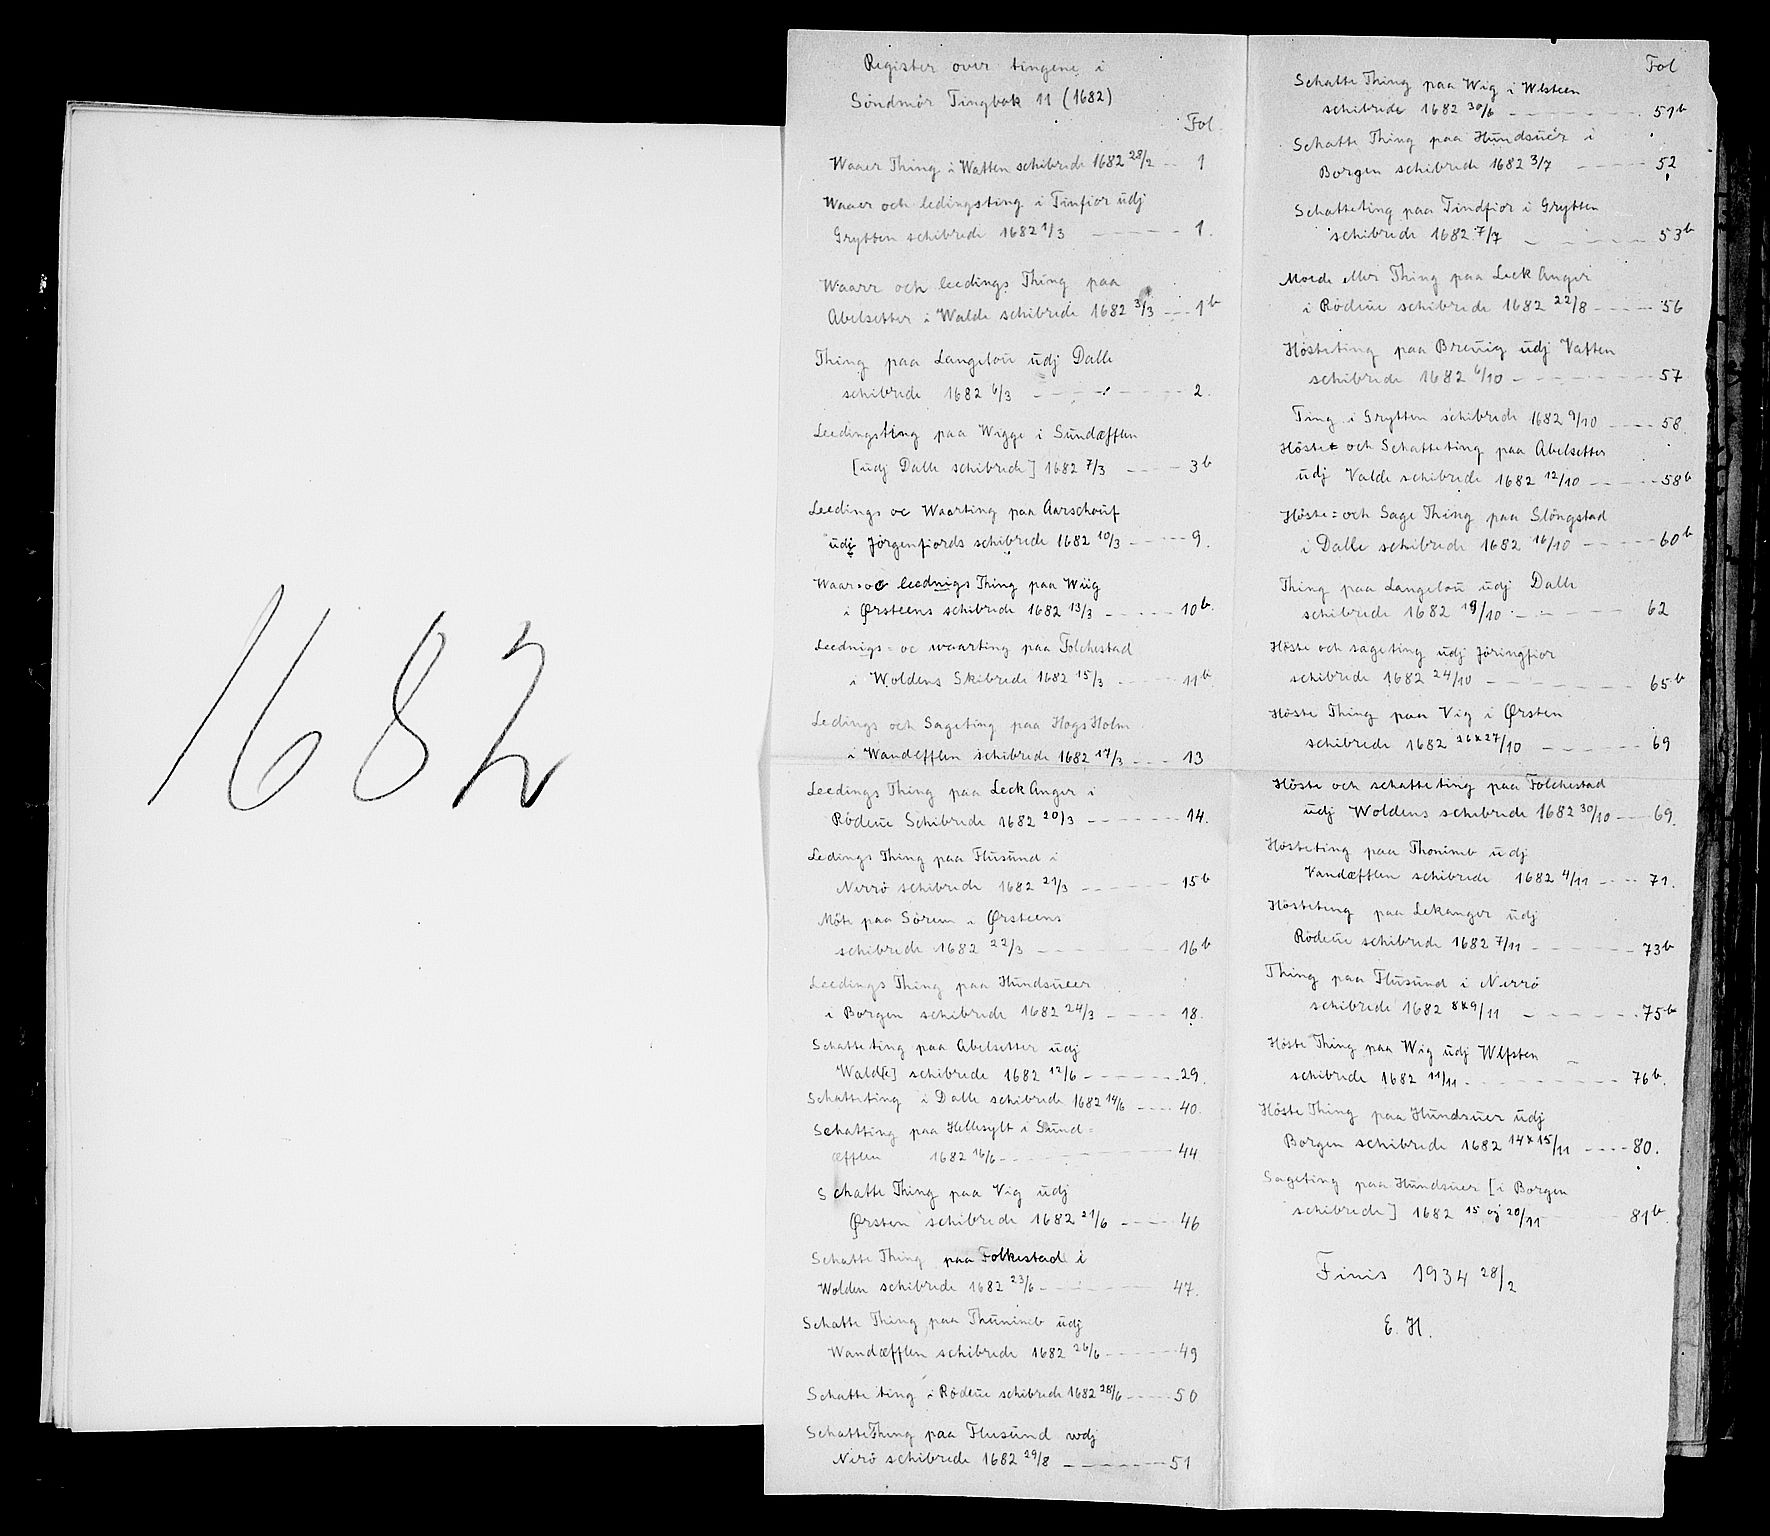 1682
Register over tingene i
Söndmör Tingbok 11 (1682)
Fol.
Waaer Thing i Watten schibrede 1682 28/2 -- 1
Waaer och ledingsting i Tinfior udj
Grytten schibrede 1682 1/3 ----- 1.
Waarr och leedings Thing paa
Abelsetter i Walde schibrede 1682 3/3 --- 1b
Thing paa Langelou udj Dalle
schibrede 1682 6/3 ------- 2.
Leedingsting paa Wigge i Sundæfflen
[udj Dalle schibrede] 1682 7/3 ---- 3b
Leedings oc Waarting paa Aarschouf
udj Jörgenfiords schibrede 1682 10/3 ---- 9.
Waar- oc leednigs Thing paa Wiig
i Ørsteens schibrede 1682 13/3 ---- 10b.
Leednigs = oc waarting paa Folchestad
i Woldens Skibrede 1682 15/3 ---- 11b
Ledings och Sageting paa HogsHolm
i Wandefflen schibrede 1682 17/3 --- 13
Leedings Thing paa LeckAnger i
Rödeue Schibrede 1682 20/3 ----- 14.
Ledings Thing paa Flusund i
Nerrö schibrede 1682 21/3 ----- 15b
Möte paa Sörem i Ørsteens
schibrede 1682 22/3 ------- 16b
Leedings Thing paa Hundsueer
i Borgen schibrede 1682 24/3 ---- 18.
Schatteting paa Abelsetter udj
Wald[e] schibrede 1682 12/6 ----- 29.
Schatteting i Dalle schibrede 1682 14/6 --- 40.
Schatting paa Hellesylt i Sund=
æfflen 1682 16/6 -------- 44
Schatte Thing paa Vig udj
Ørsten schibrede 1682 21/6 ---- 46
Schatte Thing paa Folkestad i
Wolden schibrede 1682 23/6 ------ 47.
Schatte Thing paa Thuninib udj
Wandæfflen schibrede 1682 26/6 ----- 49
Schatte ting i Rödeue schibrede 1682 28/6 ---- 50
SchatteThing paa Flusund udj
Nirö schibrede 1682 29/8 ------ 51
Fol
Schatte Thing paa Wig i Wlsteen
schibrede 1682 30/6 ------ 51b
Schatte Thing paa Hundsuer i
Borgen schibrede 1682 3/7 ---- 52
Schatteting paa Tindfior i Grytten
schibrede 1682 7/7 ----- 53b
Moede eller Thing paa LeckAnger
i Rödeue schibrede 1682 22/8 ---- 56
Hösteting paa Breuig udj Vatten
schibrede 1682 6/10 ------ 57
Ting i Grytten schibrede 1682 9/10 ---- 58.
Höste= och Schatteting paa Abelsetter
udj Valde schibrede 1682 12/10 ---- 58b
Höste= och Sage Thing paa Slöngstad
i Dalle schibrede 1682 16/10 ---- 60b
Thing paa Langelou udj Dalle
schibrede 1682 19/10 ----- 62
Höste och sageting udj Jöringfior
schibrede 1682 24/10 ------ 65b
Höste Thing paa Vig i Ørsten
schibrede 1682 26 x 27/10 ---- 69
Höste och schatteting paa Folchestad
udj Woldens schibrede 1682 30/10 --- 69.
Hösteting paa Thoninib udj
Vandæfflen schibrede 1682 4/11 --- 71.
Hösteting paa Lekanger udj
Rödeue schibrede 1682 7/11 ----- 73b
Thing paa Flusund i Nerrö
schibrede 1682 8x9/11 ----- 75b
Höste Thing paa Wig udj Wlfsten
schibrede 1682 11/11 ------- 76b.
Höste Thing paa Hundsuer udj
Borgen schibrede 1682 14 x 15/11 ---- 80.
Sageting paa Hundsuer [i Borgen
schibrede] 1682 15 og 20/11 ---- 81b.
Finis 1934 28/2
E. H.